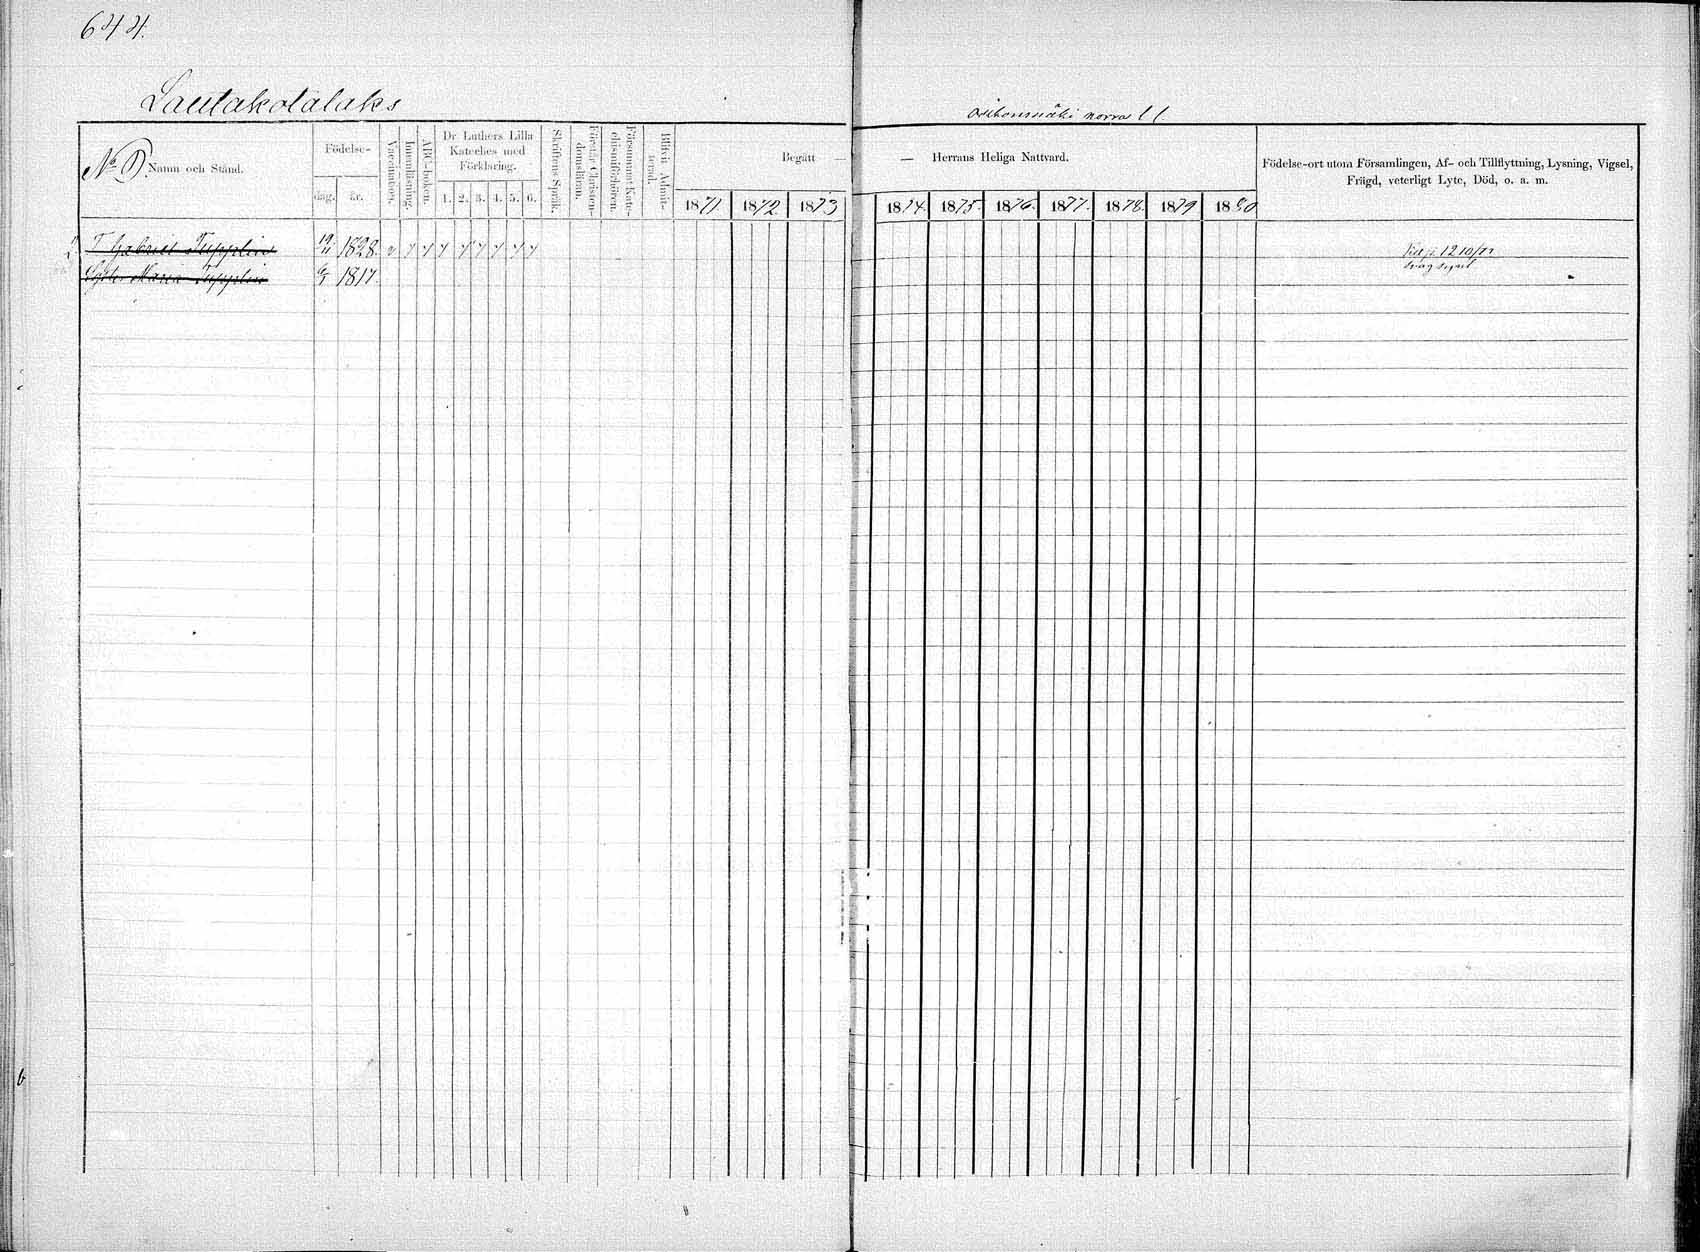 644.
Lautakotalaks
norra
No
Namn och Stånd.
Födelse-
dag.
år.
Vaccinatores.
Innanläsning.
ABC-boken.
Dr Luthers Lilla
Kateches med
Förklaring.
1. 2. 3. 4. 5. 6.
Skriftens Språk.
Förstår Christen-
domsläran.
Försummat Kate-
chismiförhören.
Blifvit Admit-
terad.
Begått —
— Herrans Heliga Nattvard.
1871 1872 1873 1874. 1875. 1876. 1877. 1878. 1879 1880
Födelse-ort utom Församlingen, Af- och Tillflyttning, Lysning, Vigsel,
Frägd, veterligt Lyte, Död, o. a. m.
T. Gabriel 19/11 1828.
Maria 1817.